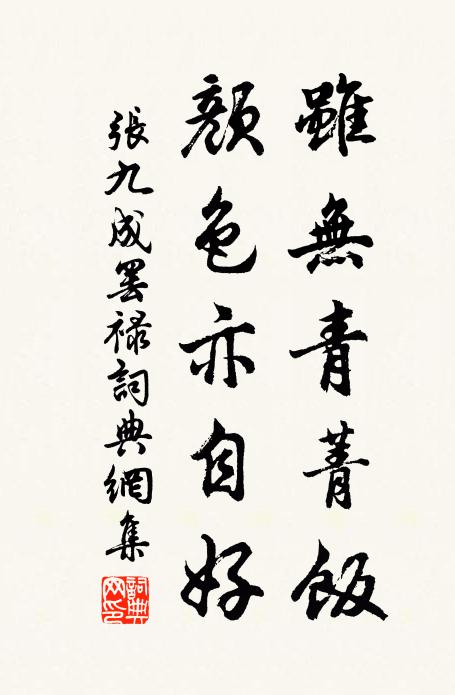 雖無青菁飯
顏色亦自好
張九成罢禄詞典網集
詞典網印